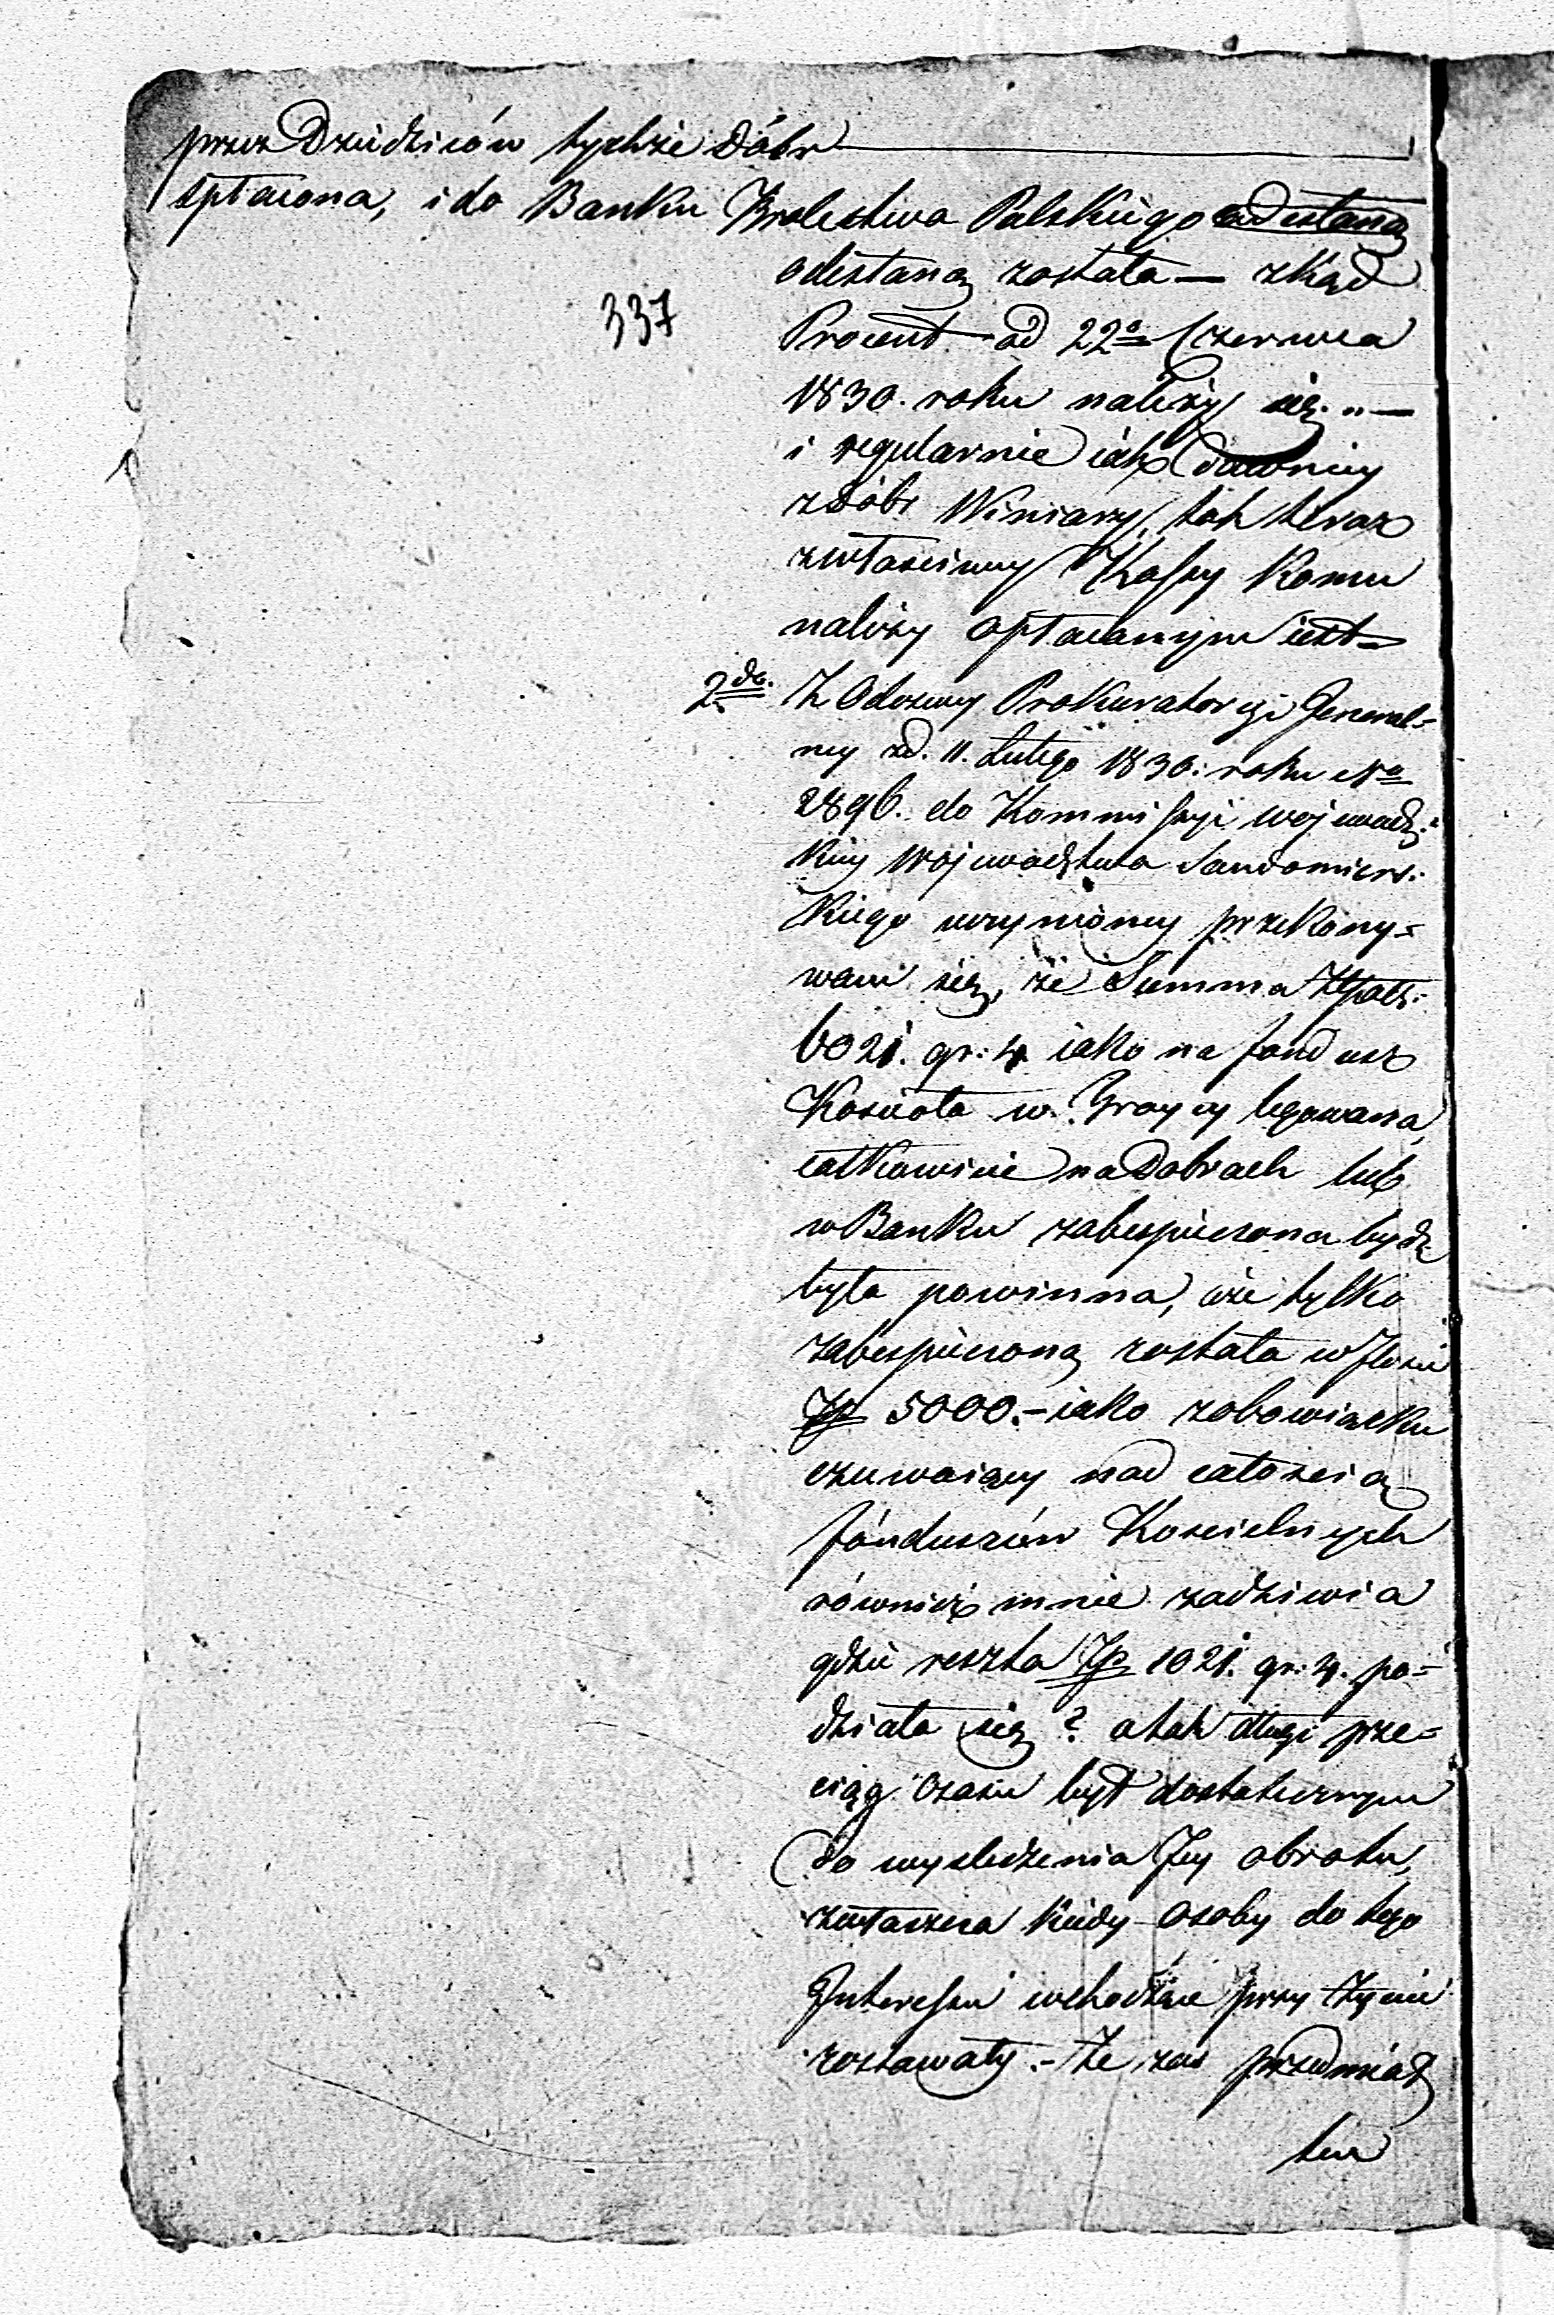 przez Dziedziców tychże Dóbr
spłacona, i do Banku Krolestwa Polskiego odesłaną
odesłaną została — zkąd
337
Procent od 22º Czerwca
1830. roku należy się. „ —
i regularnie iak dawniey
z dóbr Winiary, tak teraz
z właściwey Kassy Komu
należy opłacanym iest —
2do. Z Odezwy Prokuratoryi Jeneral=
ney z d. 11. Lutego 1830: roku Nº
2896. do Kommissyi Wojewodz.
kiey Wojewodztwa Sandomirs.
kiego uczynioney przekony=
wam się, że Summa Złpols:
6021. gr: 4. iako na fundusz
Kościoła w legowana,
całkowicie na Dobrach lub
w Banku zabespieczona bydź
była powinna, iże tylko
zabespieczoną została w Ilości
Zp 5000.- iako z obowiązku
czuwaiący nad całością
fónduszów Kościelnych
równieź mnie zadziwia
gdzie reszta Zp 1021. gr: 4. po=
działa się? a tak długi prze=
ciąg czasu był dostatecznym
do wysledzenia Jey obrotu,
zwłaszcza kiedy Osoby do tego
Interessu wchodzące przy życiu
zostawały.- Ze zas przedmiot
ten